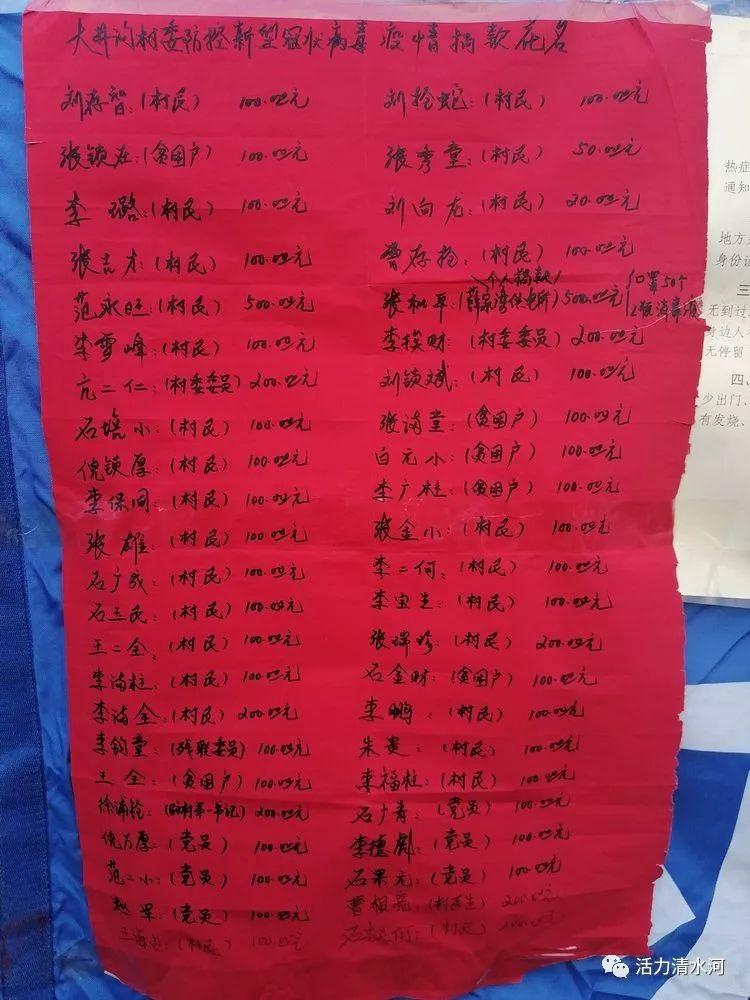 大井沟村委防控新型冠状病毒疫情捐款花名
刘存智:(村民) 100.00元
张锁在:(贫困户) 100.00元
李璐:(村民) 100.00元
张吉才:(村民) 100.00元
范永旺:(村民) 500.00元
李雪峰:(村民) 100.00元
亢二仁:(村委委员) 200.00元
石培小:(村民) 100.00元
倪锁厚:(村民) 100.00元
李保同:(村民) 100.00元
张雄:(村民) 100.00元
石广成:(村民) 100.00元
石三民:(村民) 100.00元
王二全:(村民) 100.00元
李海柱:(村民) 100.00元
李海全:(村民) 200.00元
李钧堂:(残联委员) 100.00元
王全:(贫困户) 100.00元
徐浦拴:(驻村第一书记) 200.00元
倪万厚:(党员) 100.00元
范二小:(党员) 100.00元
赵军:(党员) 100.00元
(村民) 100.00元
刘拴蛇:(村民) 100.00元
张秀堂:(村民) 50.00元
刘向龙:(村民) 20.00元
曹存拴:(村民) 100.00元
个人捐款
张和平:(薛家湾供电所) 500.00元
口罩50个
2瓶消毒液
李挨财:(村委委员) 200.00元
刘锁斌:(村民) 100.00元
张海堂:(贫困户) 100.00元
白元小:(贫困户) 100.00元
李广柱:(贫困户) 100.00元
张金小:(村民) 100.00元
李二何:(村民) 100.00元
李宝兰:(村民) 100.00元
张瑞珍:(村民) 200.00元
石金财:(贫困户) 100.00元
李鹏:(村民) 100.00元
朱贵:(村民) 100.00元
李福柱:(村民) 100.00元
石广青:(党员) 100.00元
李德:(党员) 100.00元
石果元:(党员) 100.00元
曹根(村医生) 200.00元
石(村民) 200.00元
热症
通知
地方
身份证
三
无到过
身边人
无停留
四、
少出门、
有发烧、
活力清水河